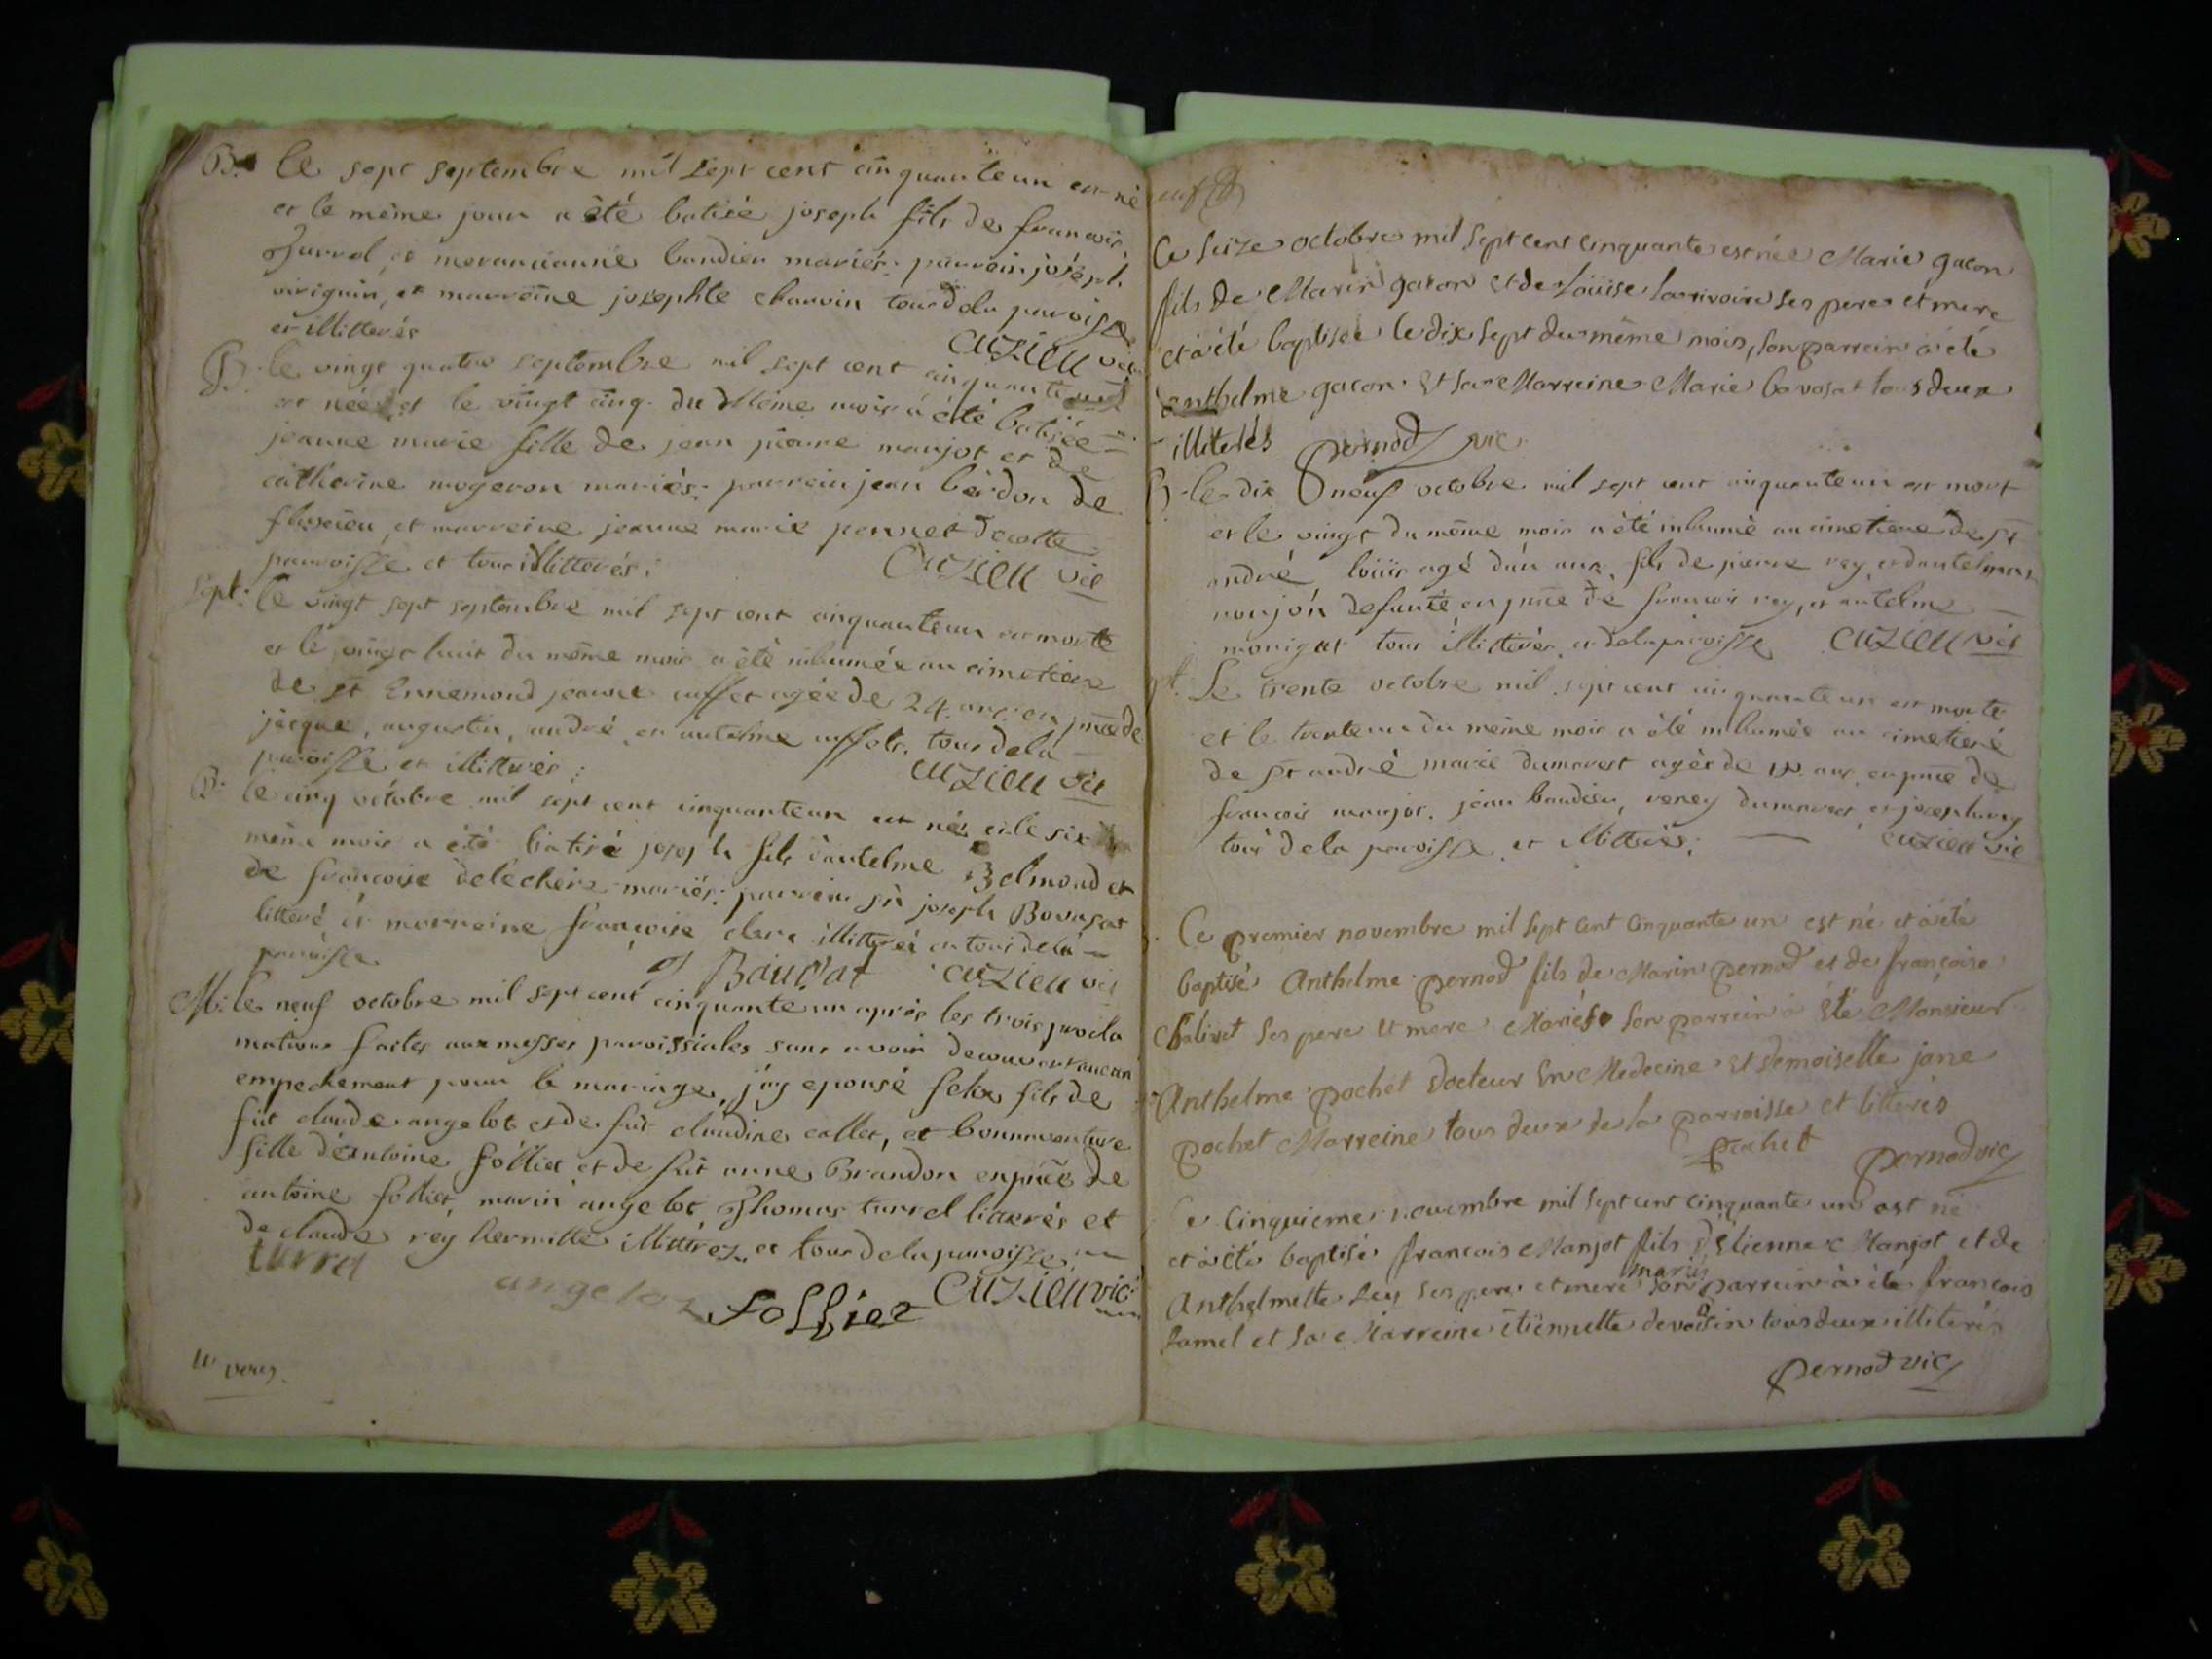 B. Le sept septembre mil sept cent cinquanteun est né
et le même jour a été batisé joseph fils de francois
Jurrel et mevancianne baudier mariés: parrein joseph
viriguin, et marreine josephte chauvin tous de la paroisse
et illitterés
cuzieu vic
B. le vingt quatre septembre mil sept cent cinquanteun
est née et le vingt cinq du même mois a été batisée
jeanne marie fille de jean pierre manjot et de
catherine mogeron mariés: parrein jean berdon de
et marreine jeanne marie pernet de cette
parroisse et tous illitterés:
cuzieu vic
sept: le vingt sept septembre mil sept cent cinquanteun est morte
et le vingt huit du même mois a été inhumée au cimetiere
de st Ennemond jeanne uffet agée de 24. ans: en pnce de
jacque, augustin, andré, et antelme uffets. tous de la
paroisse et illitterés:
cuzieu vic
B. le cinq octobre mil sept cent cinquanteun est né, et le six
même mois a été batisé joseph fils d'antelme Belmond et
de francoise delechere mariés: parrein sr joseph Bovagat
litteré, et marreine françoise clerc illitterée et tous de la
paroisse.
cuzieu vic
M. le neuf octobre mil sept cent cinquante un apres les trois procla
mations faites aux messes paroissiales sans avoir decouvert aucun
empechement pour le mariage, j'ay epousé felix fils de
fut claude angelot et de fut claudine callet, et bonnaventure
fille d'antoine follliet et de fut anne Brandon en pnce de
antoine folliet, marin angelot, Thomas turrel litterés et
de claude rey hermitte illittrez. et tous de la paroisse:
turrel
angeloz follliet cuzieu vic

Ce seize octobre mil sept cent cinquante est née Marie gacon
fils de Marin gacon et de Loüise Larrivoire ses pere et mere
et a été baptisée le dix sept du même mois, son parrein a été
anthelme gacon et sa Marreine Marie bovosat tous deux
illiterés pernod vic
le dix neuf octobre mil sept cent cinquanteun est mort
et le vingt du même mois a été inhumé au cimetiere de st
andré loüis agé d'un ans, fils de pierre rey, et d'antelme
monjon defunte en pnce de francois rey, et antelme
monigat tous illitterés et de la paroisse cuzieu vic
Le trente octobre mil sept cent cinquante un est morte
et le trenteun du même mois a été inhumée au cimetiere
de st andré marie dumarest agée de ans, en pnce de
francois manjot. jean baudier, verey dumarest et joseph rey
tous de la paroisse et illitterés: cuzieu vic
Ce premier novembre mil sept cent cinquante un est né et a été
baptisé Anthelme pernod fils de Marin pernod et de françoise
Chalivet ses pere et mere Mariés son parrein a été Monsieur
Anthelme pochet docteur en Medecine et demoiselle jane
pochet Marreine tous deux de la parroisse et litterés
pochet pernod vic
Ce cinquieme novembre mil sept cent cinquante un est né
et a été baptisé francois Manjot fils d'Etienne Manjot et de
mariés
Anthelmette Ley ses pere et mere son parrein a été francois
Lamel et sa Marreine etiennette devoisin tous deux illiterés
pernod vic